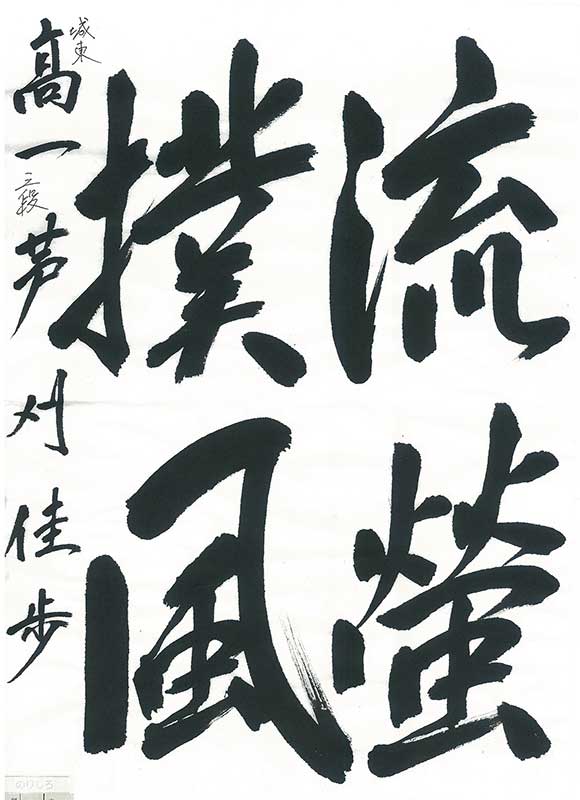 流螢
撲風
城東
高一三段芦刈佳歩
のりしろ